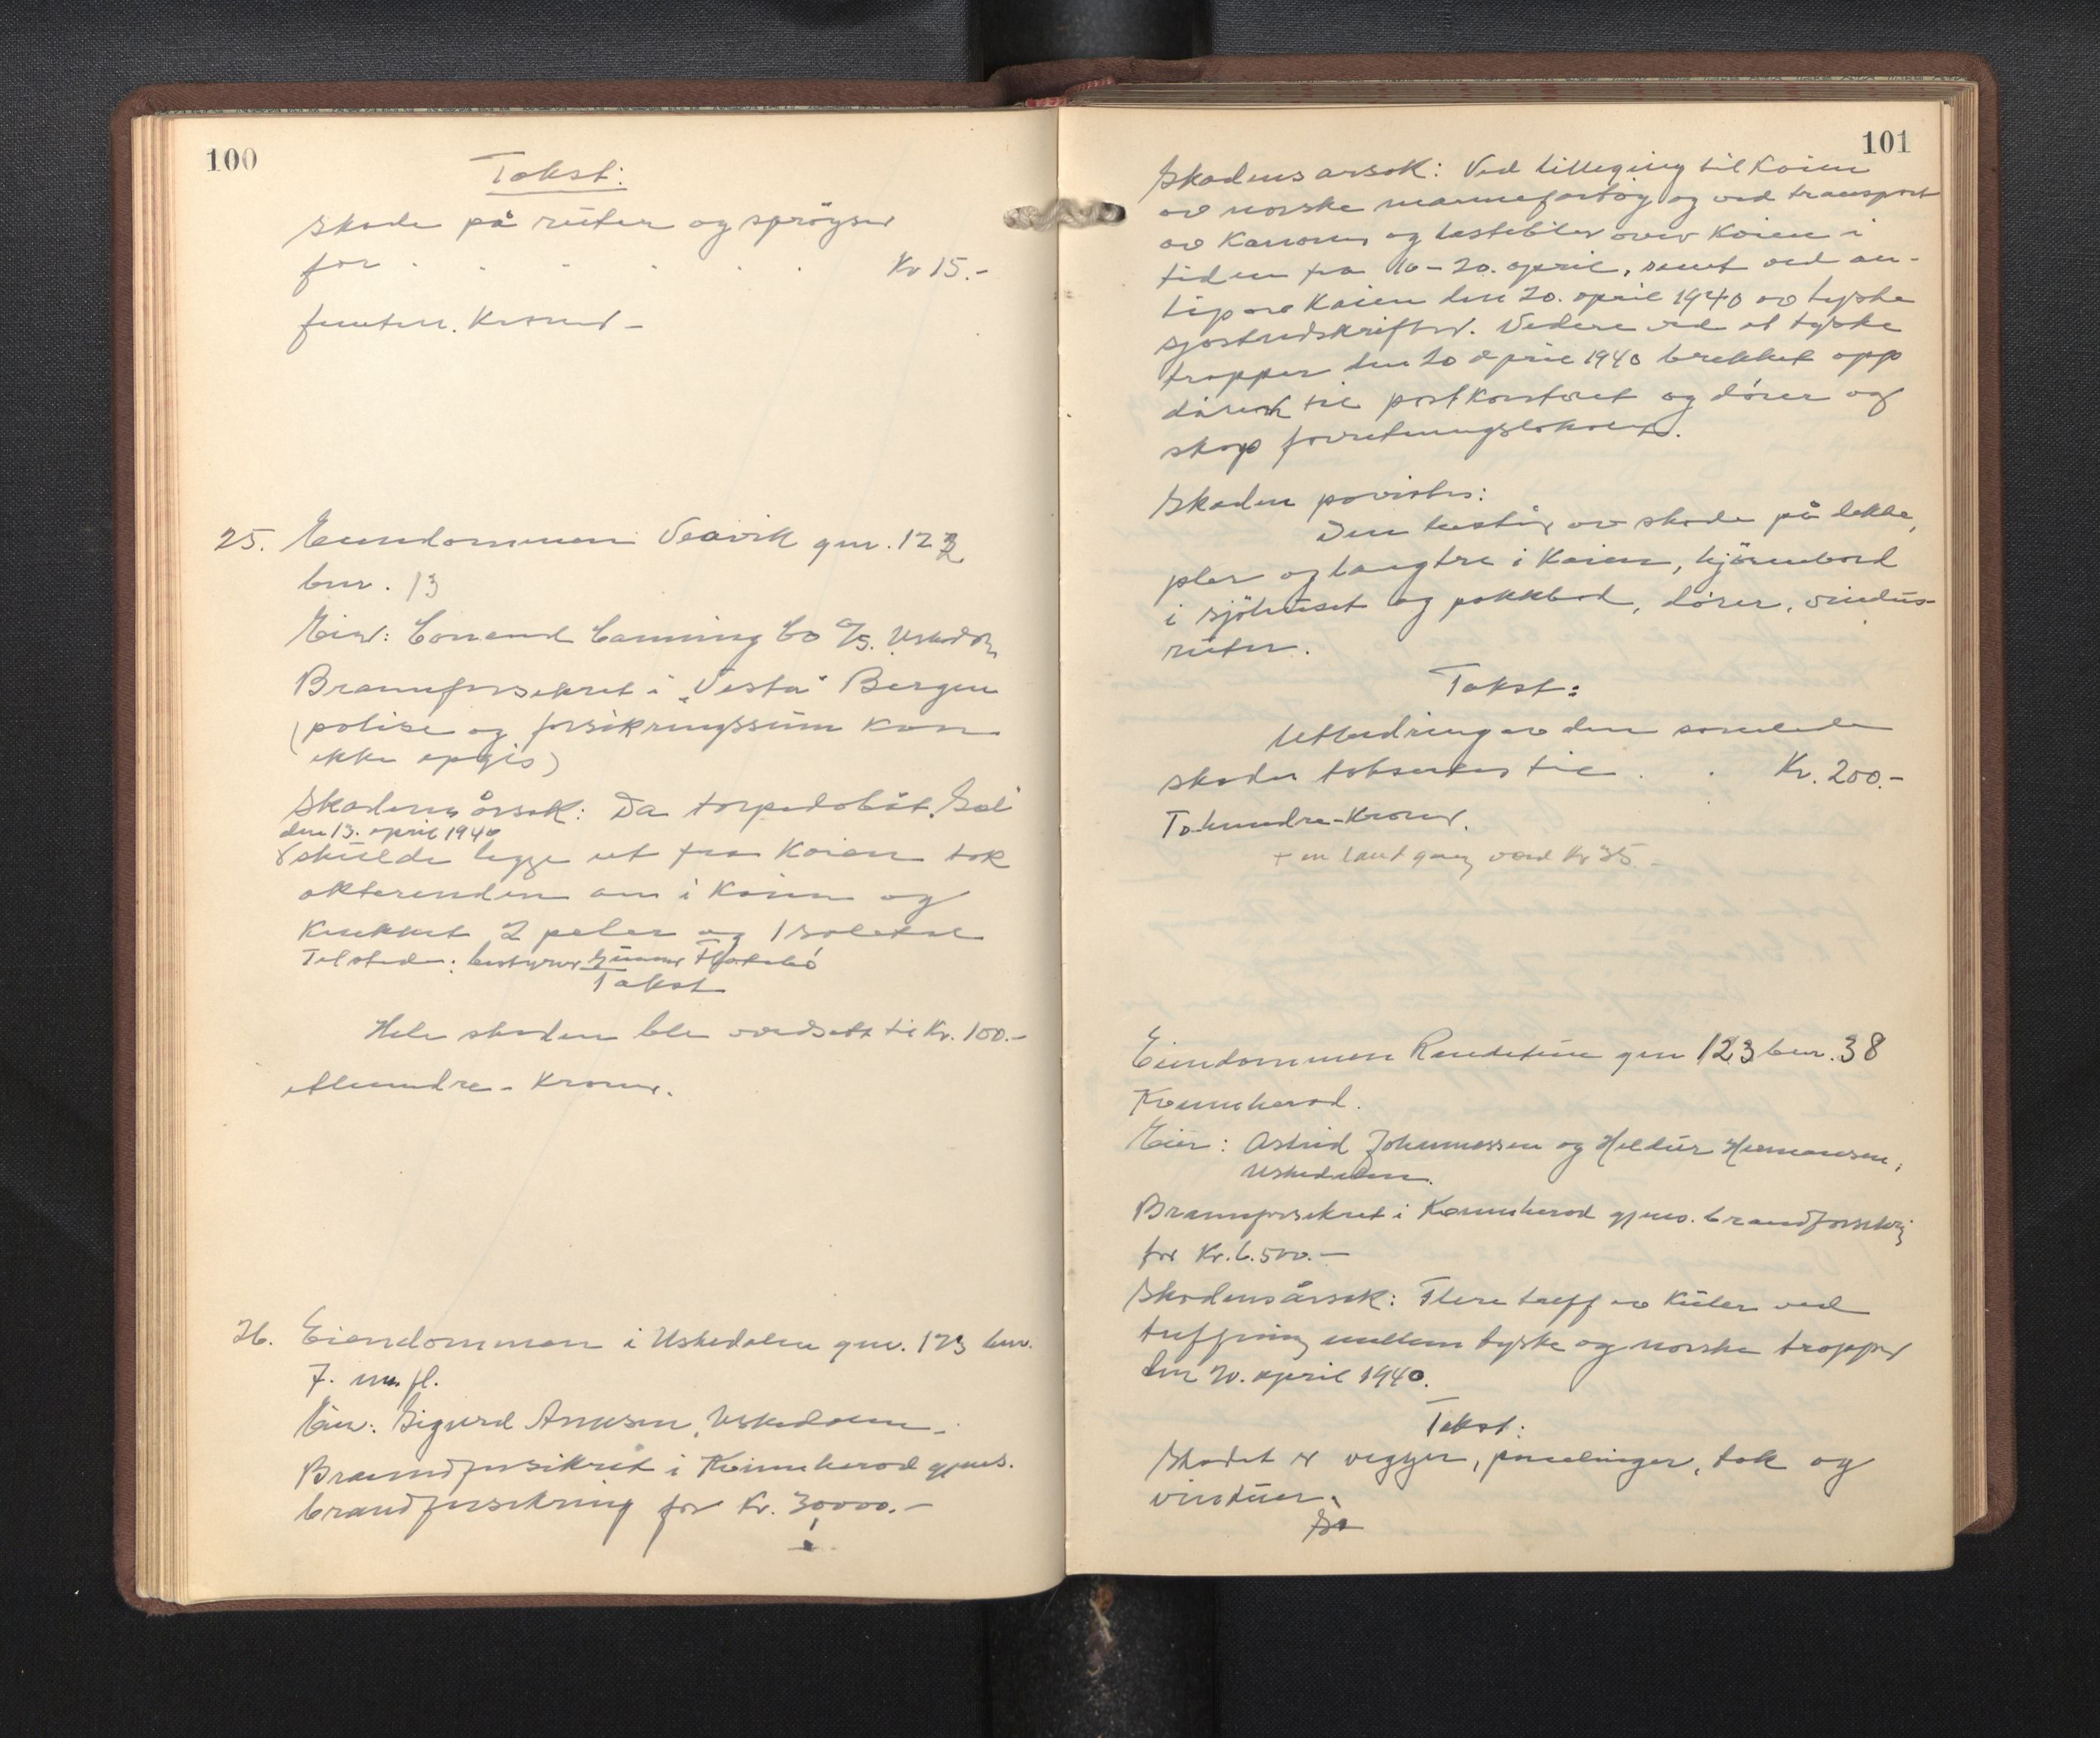 100
Takst:
Skade på rüter og sprögser
for . . . . . . Kr 15.-
femten. Kroner -
25. Eiendommen Veavik gnr. 122
bnr. 13
Eier: Concord Canning Co A/S. Uskedaln
Brannforsikret i "Vesta" Bergen
(polise og forsikringssüm kan
ikke opgis)
Skadens årsak: Da torpedobåt. Sæl
den 13. april 1940
skülde legge ut fra Kaien tok
akterenden an i Kaien og
Knekket 2 peler og 1
Tilstede: bestyrer Günnar
Takst
Hele skaden ble verdsatt til Kr. 100.-
etthundre - Kroner.
26. Eiendommen i Uskedalen gnr. 123 bnr.
7. m. fl.
Eier: Sigurd Arnesen, Uskedalen.
Brandforsikret i Kvinnherad gjens.
brandforsikring for Kr. 30000.-
101
Skadens arsak: Ved tillegging til Kaien
av norske marinefartøy og ved transport
av Kanoner og lastebiler over Kaien i
tiden fra 10-20. april, samt ved an-
løp av Kaien den 20. april 1940 av tyske
sjøstridskrefter. Videre ved at tyske
tropper den 20 april 1940 brekket opp
døren til postkontoret og dører og
skap forretningslokalet.
Skaden påvistes:
Den består av skade på dekke,
peler og langtre i Kaien, hjörnebord
i sjöhuset og pakkbod, dører, vindüs-
rüter.
Takst:
Utbedring av den samlede
skade takseres til . . Kr. 200.-
Tohundre-Kroner.
+ en landgang verd Kr 35.-
Eiendommen gnr 123 bnr. 38
Kvinnherad.
Eier: Astrid Johannessen og Hildür Hermansen,
Uskedalen.
Brannforsikret i Kvinnherad gjens. brandforsikring
for Kr. 6.500.-
Skadens årsak: Flere treff av Küler ved
treffning mellem tyske og norske tropper
den 20. april 1940.
Takst:
Skadet er vegger, panelinger, tak og
vindüer.